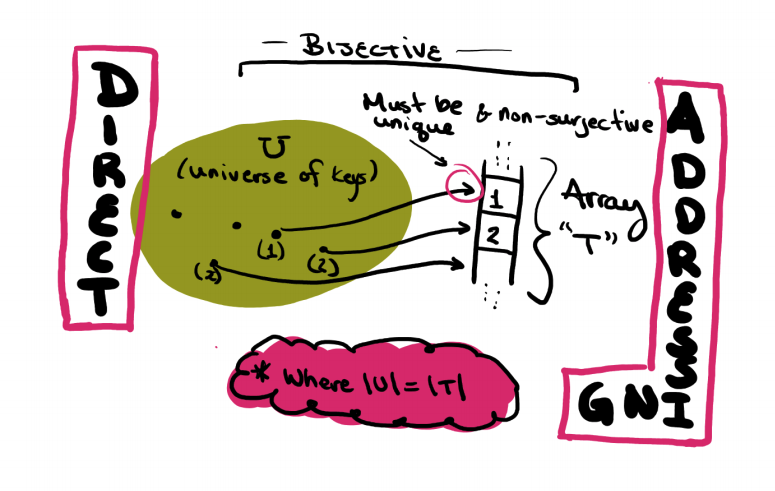 — BIJECTIVE —
DIRECT
Must be & non-surjective
unique
U
(universe of keys)
(1)
(2)
(2)
1
2
Array
"T"
ADDRESSI
GN
* Where |U| = |T|